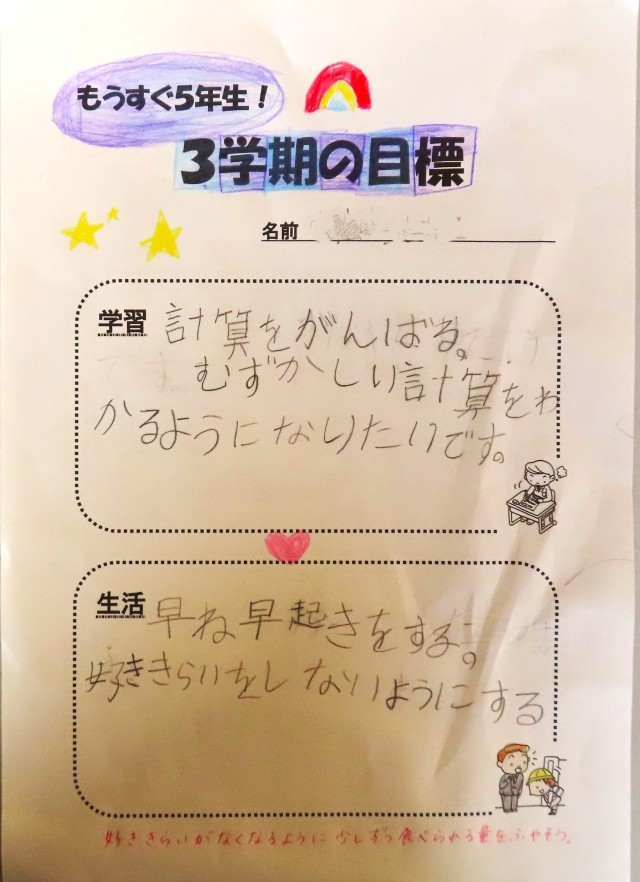 もうすぐ5年生！
3学期の目標
名前
学習 計算をがんばる。
むずかしい計算をわ
かるようになりたいです。
生活 早ね早起きをする。
好ききらいをしないようにする
好ききらいがなくなるように少しずつ食べられる量をふやそう。